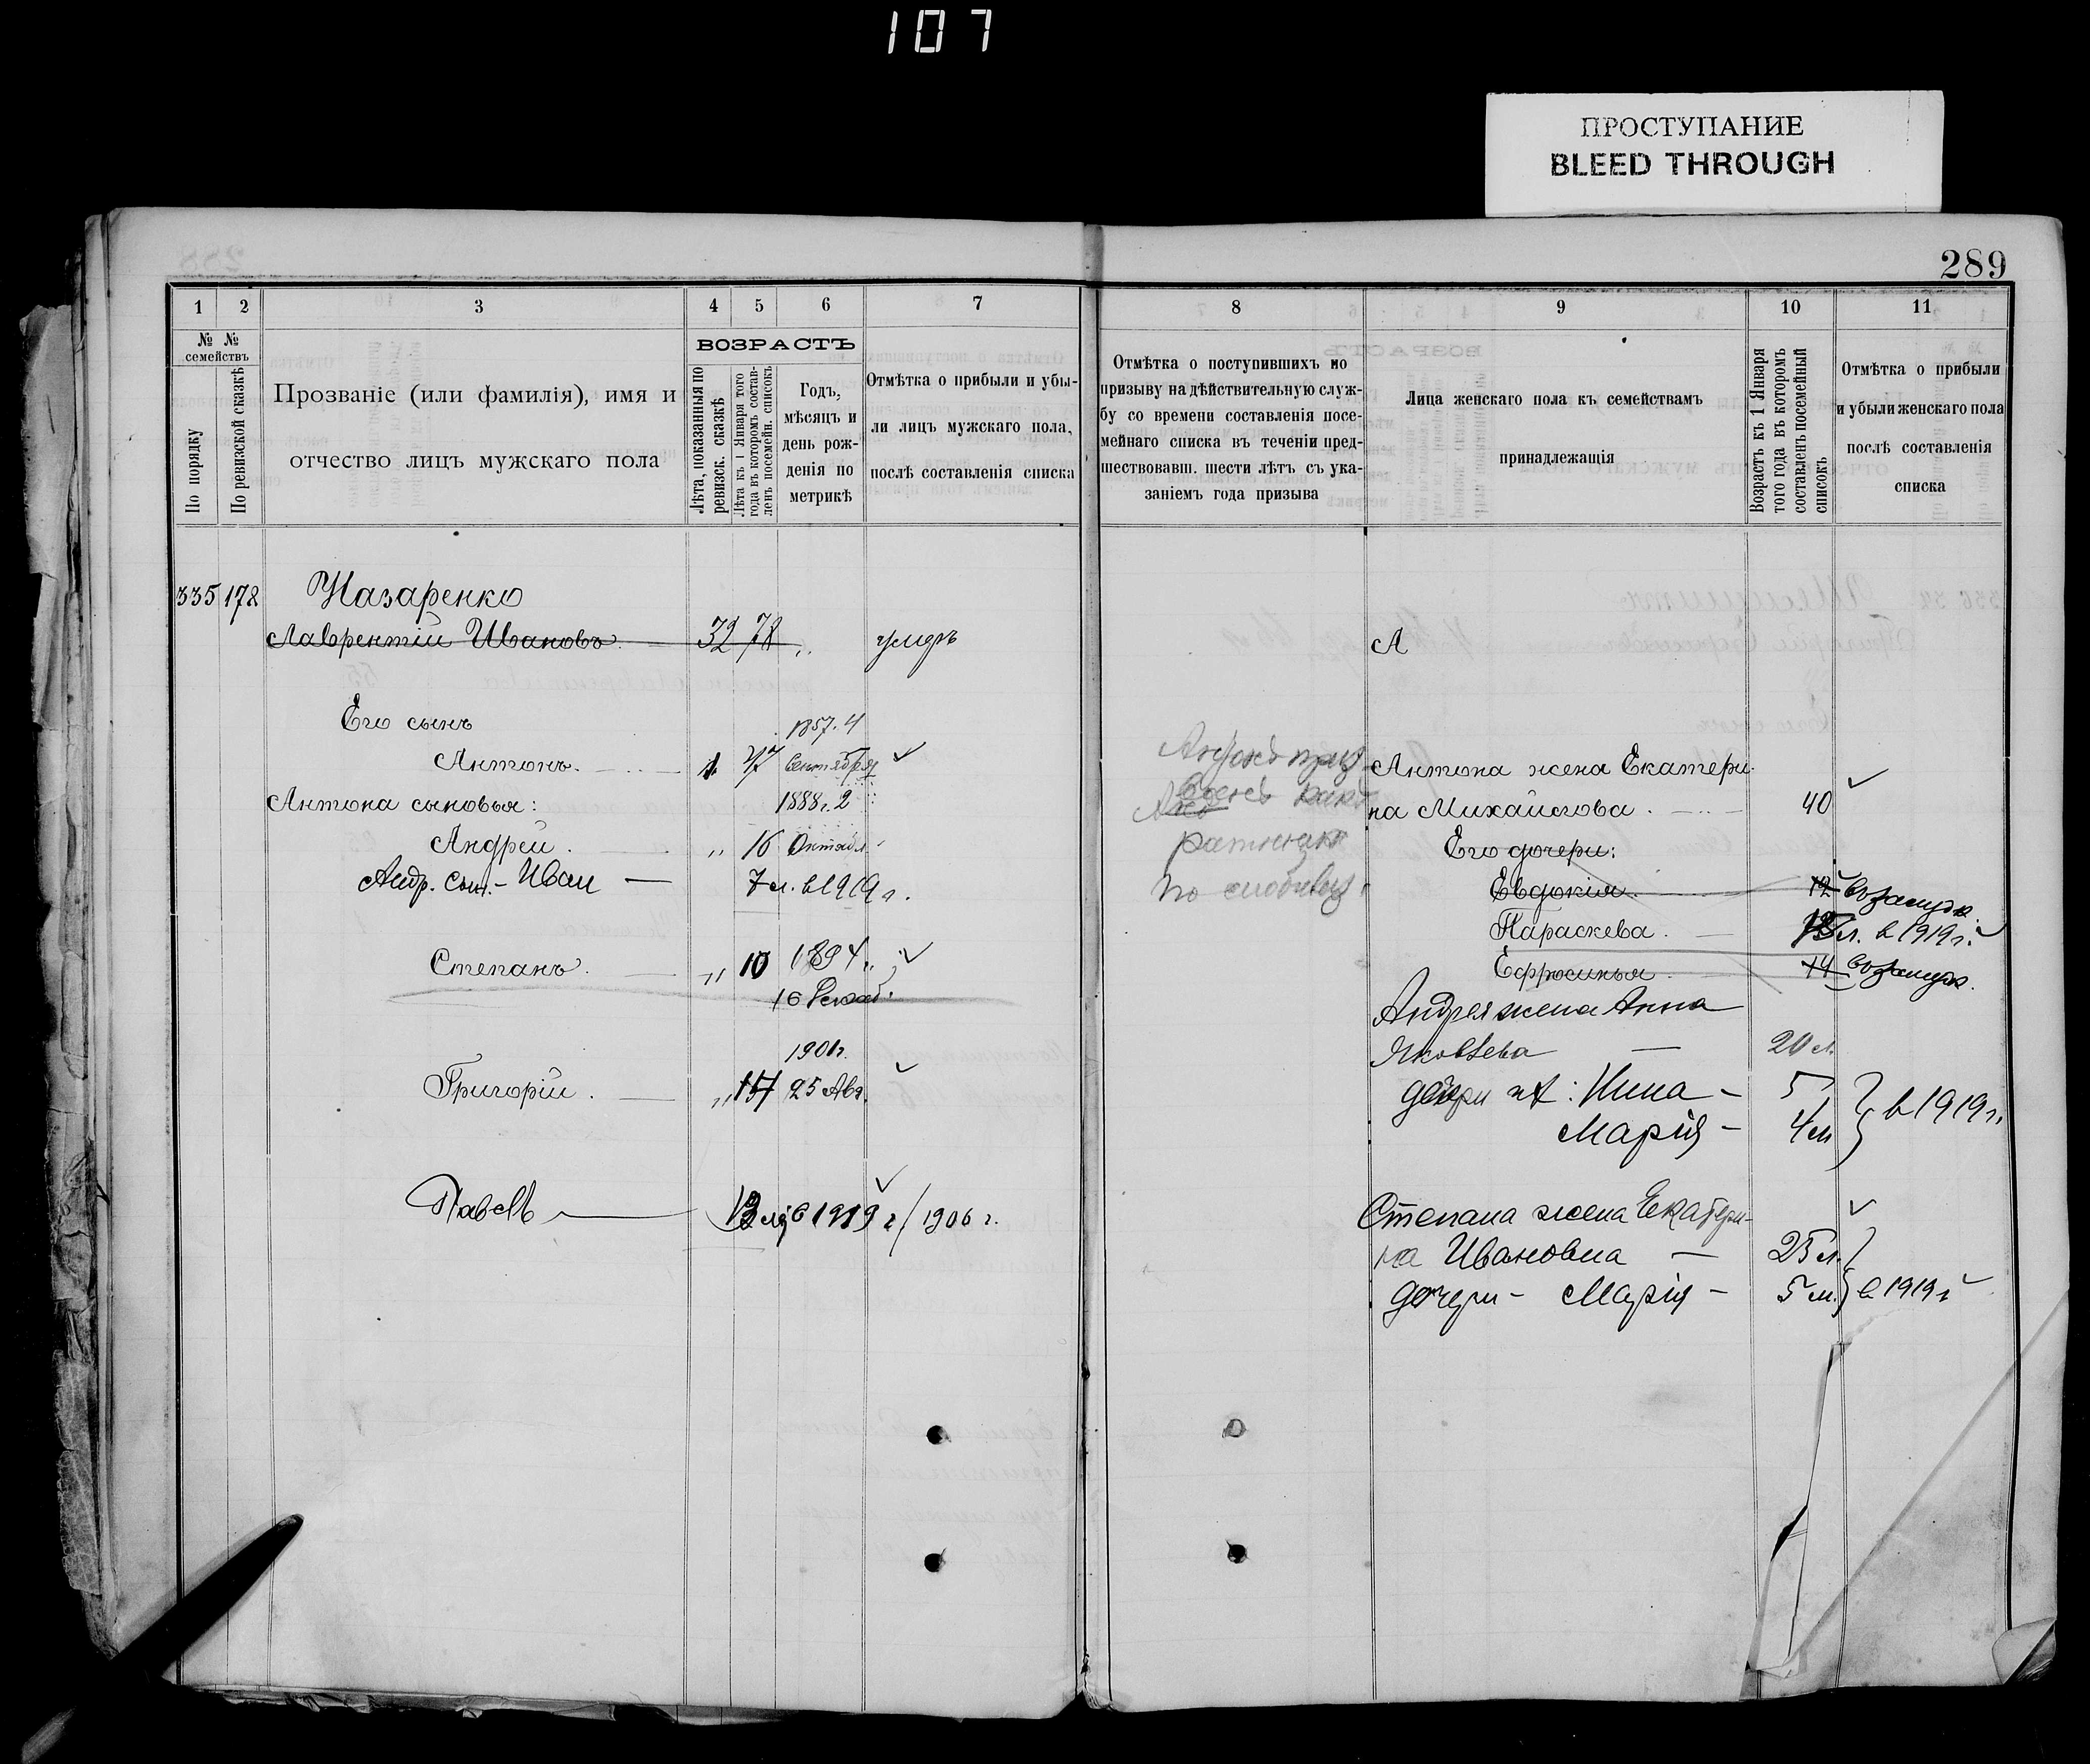 107
ПРОСТУПАНИЕ
BLEED THROUGH
289
1 2 3 4 5 6 7
№ № семействъ
По порядку
По ревизской сказкѣ
Прозваніе (или фамилія), имя и
отчество лицъ мужскаго пола
ВОЗРАСТЪ
Лѣта, показанныя по
ревизск. сказкѣ
Лѣта къ 1 Января того
года въ которомъ состав-
ленъ посемейн. списокъ
Годъ,
мѣсяцъ и
день рож-
денія по
метрикѣ
Отмѣтка о прибыли и убы-
ли лицъ мужскаго пола,
послѣ составленія списка
335 178 Назаренко
Лаврентій Ивановъ 32 78 „ умеръ
Его сынъ 1857. 4
Антонъ. 1 47 Сентября
Антона сыновья: 1888 г. 2
Андрей. „ 16 Октябл.
Андр. сын. - Иван — 7 л. в 1919 г.
Степанъ. „ 10 1894 „
16 Декаб.
1901 г.
Григорій. „ 25 Авг.
Павелъ 13 л. в 1919 г. / 1906 г.
8 9 10 11
Отмѣтка о поступившихъ по
призыву на дѣйствительную служ-
бу со времени составленія посе-
мейнаго списка въ теченіи пред-
шествовавш. шести лѣтъ съ ука-
заніемъ года призыва
Лица женскаго пола къ семействамъ
принадлежащія
Возрастъ къ 1 Января
того года въ которомъ
составленъ посемейный
списокъ
Отмѣтка о прибыли
и убыли женскаго пола
послѣ составленія
списка
А
Антона жена Екатери-
на Михайлова. 40
Его дочери:
Евдокія 12 в замуж.
Параскева. л. в 1919 г.
Ефросинья 14 в замуж.
Андрея жена Анна
Яковлева — 20 л.
дочери их: Нина - 5
Марія - 4 л. } в 1919 г.
Степана жена Екатери-
на Ивановна — 25 л.
дочери - Марія - 5 л. } в 1919 г
ратник